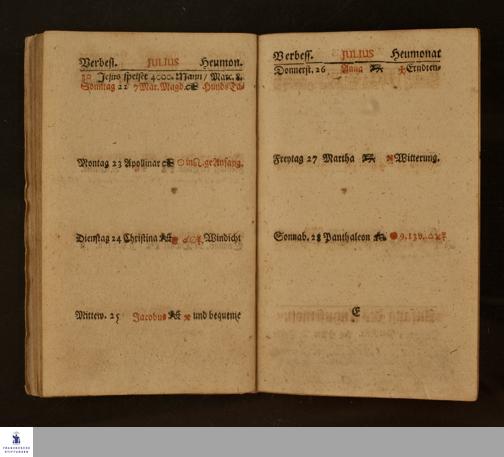 Verbess. JULIUS Heumon.
30 Jesus speiset 4000. Mann / Marc. 8.
Sonntag 22 7 Mar. Magd. Hunds Ta-
Montag 23 Apollinar ☉ in ♌. ge Anfang.
Dienstag 24 Christina Windicht
Mittew. 25 Jacobus und bequeme
Verbess. JULIUS Heumonat
Donnerst. 26 Anna Erndten-
Freytag 27 Martha Witterung.
Sonnab. 28 Panthaleon
E
FRANCKESCHE
STIFTUNGEN